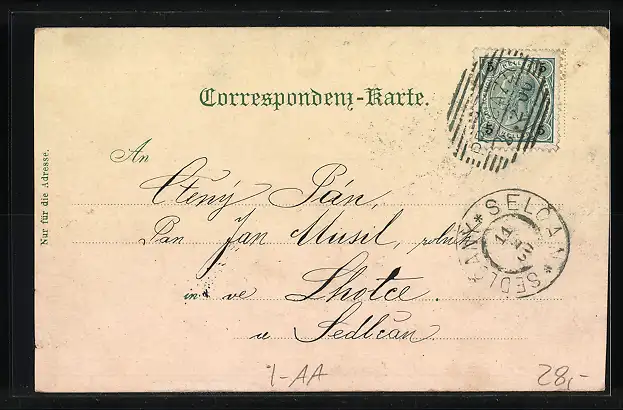 Correspondenz-Karte.
Nur für die Adresse.
An
Ctěný Pán,
Pan Jan Musil, rolník
ve Lhotce.
u Sedlčan
SELČAN * SEDLČANY *
11
00
5 5
5 5
1-AA
28,-